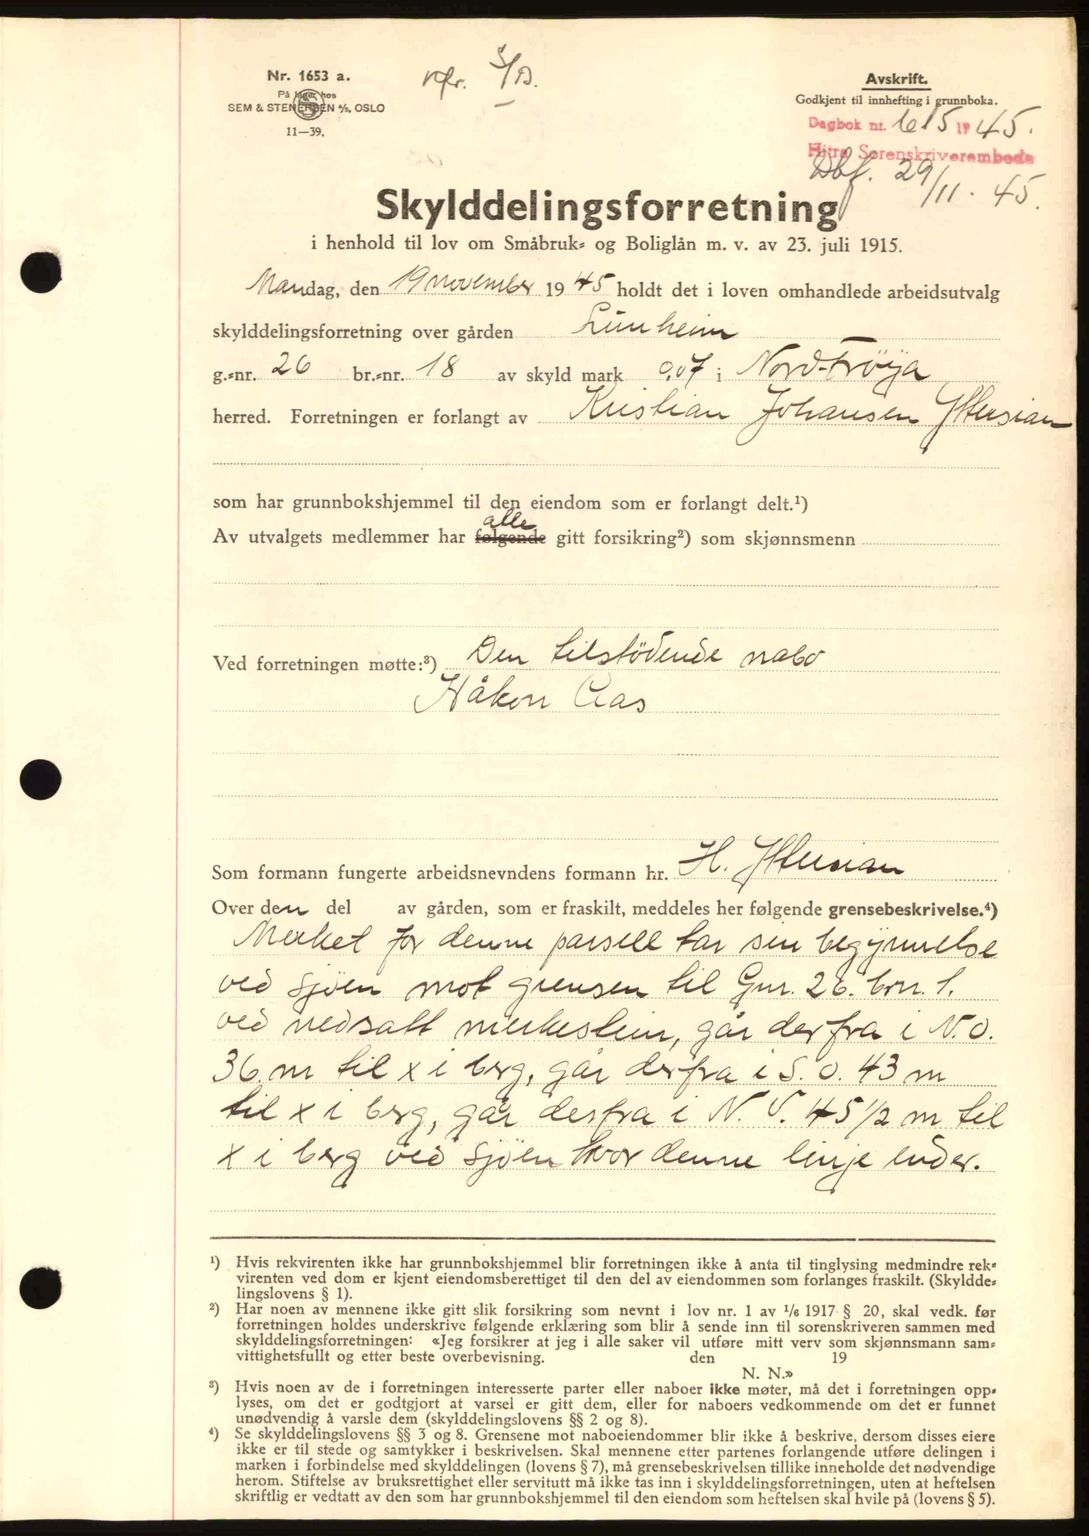 Nr. 1653 a.
På lager hos
SEM & STENERSEN A/S, OSLO
11—39.
vfr. S/D.
Avskrift.
Godkjent til innhefting i grunnboka.
Dagbok nr. 615 1945.
Hitra Sorenskriverembede
Dbf. 29/11. 45.
Skylddelingsforretning
i henhold til lov om Småbruk- og Boliglån m. v. av 23. juli 1915.
Mandag, den 19 november 1945 holdt det i loven omhandlede arbeidsutvalg
skylddelingsforretning over gården Lunheim
g.-nr. 26 br.-nr. 18 av skyld mark 0,07 i Nord-Frøya
herred. Forretningen er forlangt av Kristian Johansen Yttersian
som har grunnbokshjemmel til den eiendom som er forlangt delt.¹)
alle
Av utvalgets medlemmer har følgende gitt forsikring²) som skjønnsmenn
Ved forretningen møtte:³) Den tilstödende nabo
Håkon Aas
Som formann fungerte arbeidsnevndens formann hr. H. Yttersian
Over den del av gården, som er fraskilt, meddeles her følgende grensebeskrivelse.⁴)
Merket for denne parsell tar sin begynnelse
ved sjöen mot grensen til Gnr. 26. brn. 1.
ved nedsatt merkestein, går derfra i N.O.
36 m til x i berg, går derfra i S.O. 43 m
til x i berg, går derfra i N.V. 45 1/2 m til
x i berg ved sjöen hvor denne linje ender.
¹) Hvis rekvirenten ikke har grunnbokshjemmel blir forretningen ikke å anta til tinglysing medmindre rek-
virenten ved dom er kjent eiendomsberettiget til den del av eiendommen som forlanges fraskilt. (Skyldde-
lingslovens § 1).
²) Har noen av mennene ikke gitt slik forsikring som nevnt i lov nr. 1 av 1/6 1917 § 20, skal vedk. før
forretningen holdes underskrive følgende erklæring som blir å sende inn til sorenskriveren sammen med
skylddelingsforretningen: «Jeg forsikrer at jeg i alle saker vil utføre mitt verv som skjønnsmann sam-
vittighetsfullt og etter beste overbevisning. den 19
N. N.»
³) Hvis noen av de i forretningen interesserte parter eller naboer ikke møter, må det i forretningen opp-
lyses, om det er godtgjort at varsel er gitt dem, eller for naboers vedkommende om det er funnet
unødvendig å varsle dem (skylddelingslovens §§ 2 og 8).
⁴) Se skylddelingslovens §§ 3 og 8. Grensene mot naboeiendommer blir ikke å beskrive, dersom disses eiere
ikke er til stede og samtykker i beskrivelsen. Skal mennene etter partenes forlangende utføre delingen i
marken i forbindelse med skylddelingen (lovens § 7), må grensebeskrivelsen tillike inneholde det nødvendige
herom. Stiftelse av bruksrettighet eller servitutt må ikke tas inn i skylddelingsforretningen, uten at heftelsen
skriftlig er vedtatt av den som har grunnbokshjemmel til den eiendom som heftelsen skal hvile på (lovens § 5).